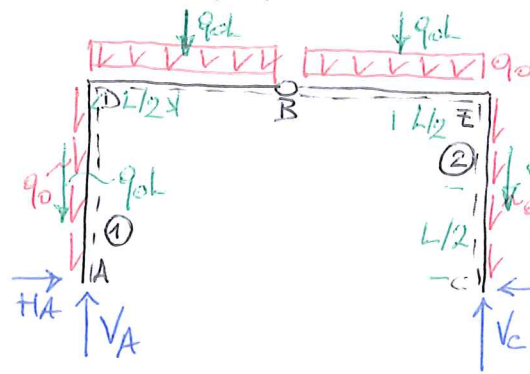 q₀L q₀L
q₀
D L/2 B L/2 E
②
q₀ q₀L
① L/2
A C
H_A V_A V_C